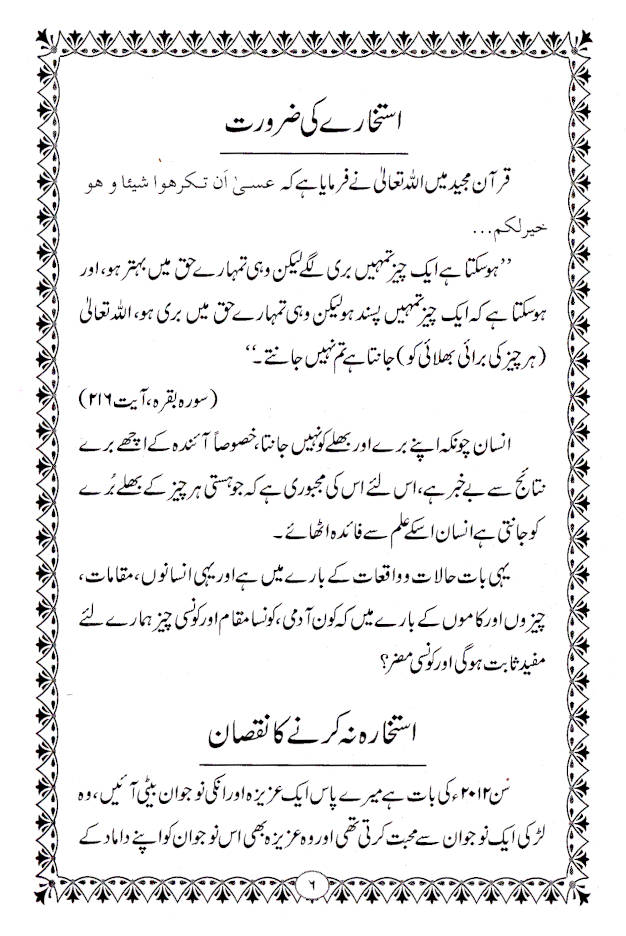 استخارے کی ضرورت
قرآن مجید میں اللہ تعالیٰ نے فرمایا ہے کہ عسیٰ اَن تکرھوا شیئا و ھو
خیرلکم...
’’ہوسکتا ہے ایک چیز تمہیں بری لگے لیکن وہی تمہارے حق میں بہتر ہو، اور
ہوسکتا ہے کہ ایک چیز تمہیں پسند ہو لیکن وہی تمہارے حق میں بری ہو، اللہ تعالیٰ
(ہر چیز کی برائی بھلائی کو) جانتا ہے تم نہیں جانتے۔‘‘
(سورہ بقرہ، آیت ۲۱۶)
انسان چونکہ اپنے برے اور بھلے کو نہیں جانتا، خصوصاً آئندہ کے اچھے برے
نتائج سے بے خبر ہے، اس لئے اس کی مجبوری ہے کہ جو ہستی ہر چیز کے بھلے بُرے
کو جانتی ہے انسان اسکے علم سے فائدہ اٹھائے۔
یہی بات حالات و واقعات کے بارے میں ہے اور یہی انسانوں، مقامات،
چیزوں اور کاموں کے بارے میں کہ کون آدمی، کونسا مقام اور کونسی چیز ہمارے لئے
مفید ثابت ہوگی اور کونسی مضر؟
استخارہ نہ کرنے کا نقصان
سن ۲۰۱۲ء کی بات ہے میرے پاس ایک عزیزہ اور انکی نوجوان بیٹی آئیں، وہ
لڑکی ایک نوجوان سے محبت کرتی تھی اور وہ عزیزہ بھی اس نوجوان کو اپنے داماد کے
۶